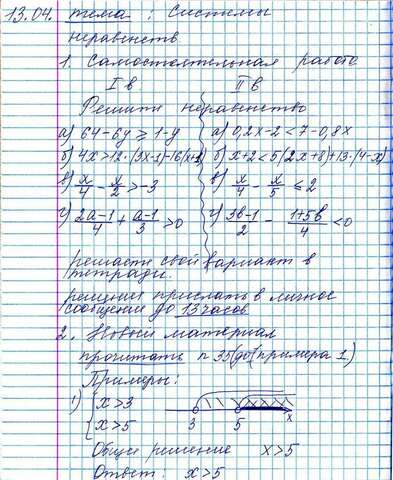 13.04. тема: Системы
неравенств
1. Самостоятельная работа
I в II в
Решите неравенство
а) 64 - 6y ≥ 1 - y а) 0,2x - 2 < 7 - 0,8x
б) 4x > 12 · (3x - 1) - 16(x + 1) б) x + 2 < 5(2x + 8) + 13 · (4 - x)
в) x/4 - x/2 > -3 в) x/4 - x/5 ≤ 2
г) 2a - 1/4 + a - 1/3 > 0 г) 3b - 1/2 - 1 + 5b/4 < 0
решаете свой вариант в
тетради.
решения прислать в личное
сообщение до 13 часов
2. Новый материал
прочитать п 35 (до примера 1)
Примеры:
1) { x > 3
x > 5
3 5 x
Общее решение x > 5
Ответ: x > 5